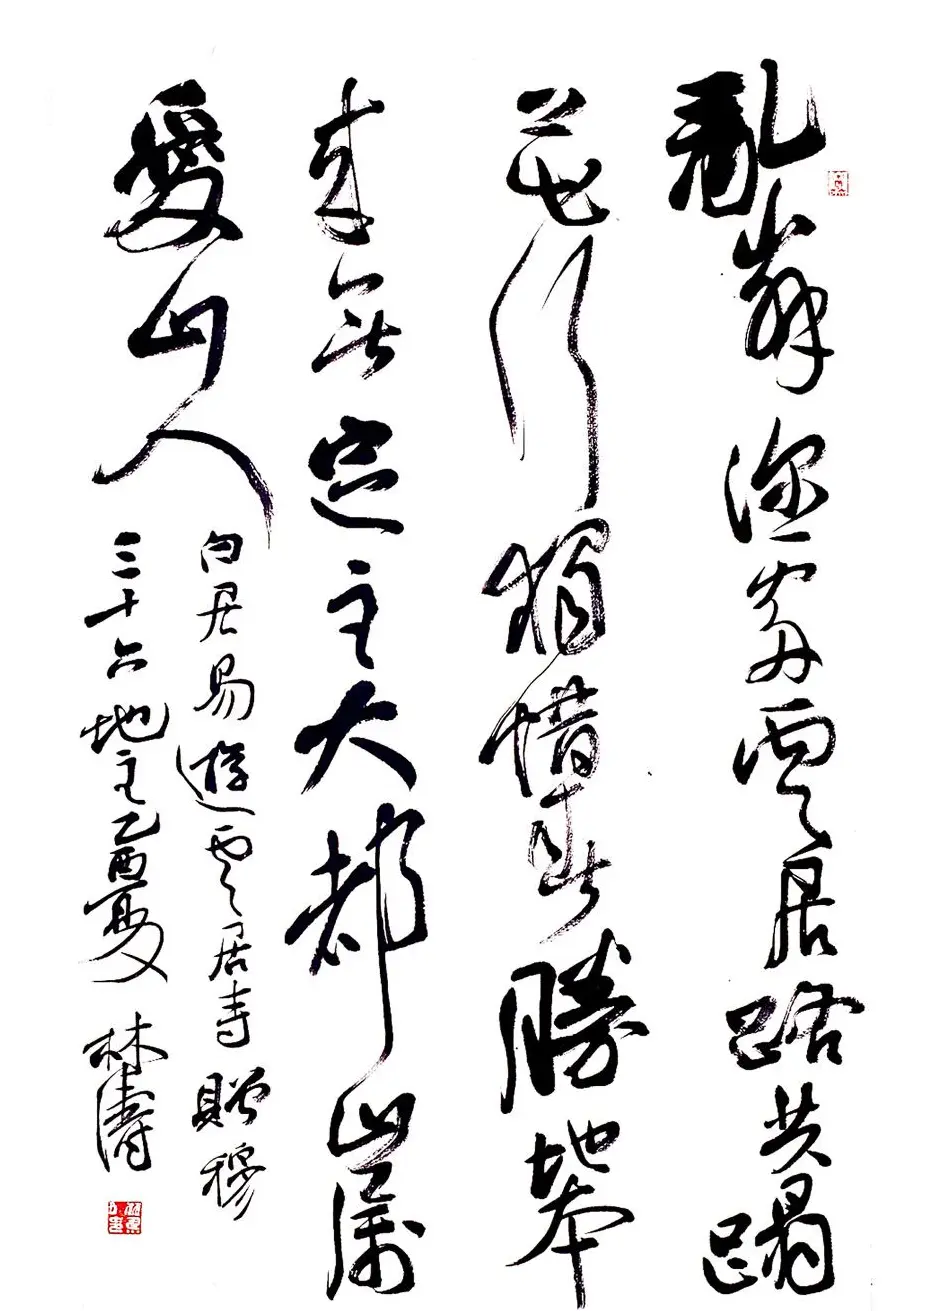 亂峰深處雲居路共蹋
花行獨惜春勝地本
來無定主大都山屬
愛山人
白居易遊雲居寺贈穆
三十六地主乙酉夏 林濤